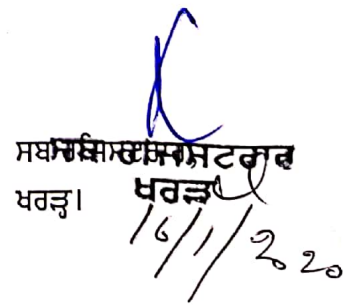 ਸਬ ਰਜਿਸਟਰਾਰ
ਖਰੜ।
ਖਰੜ
16/1/2020